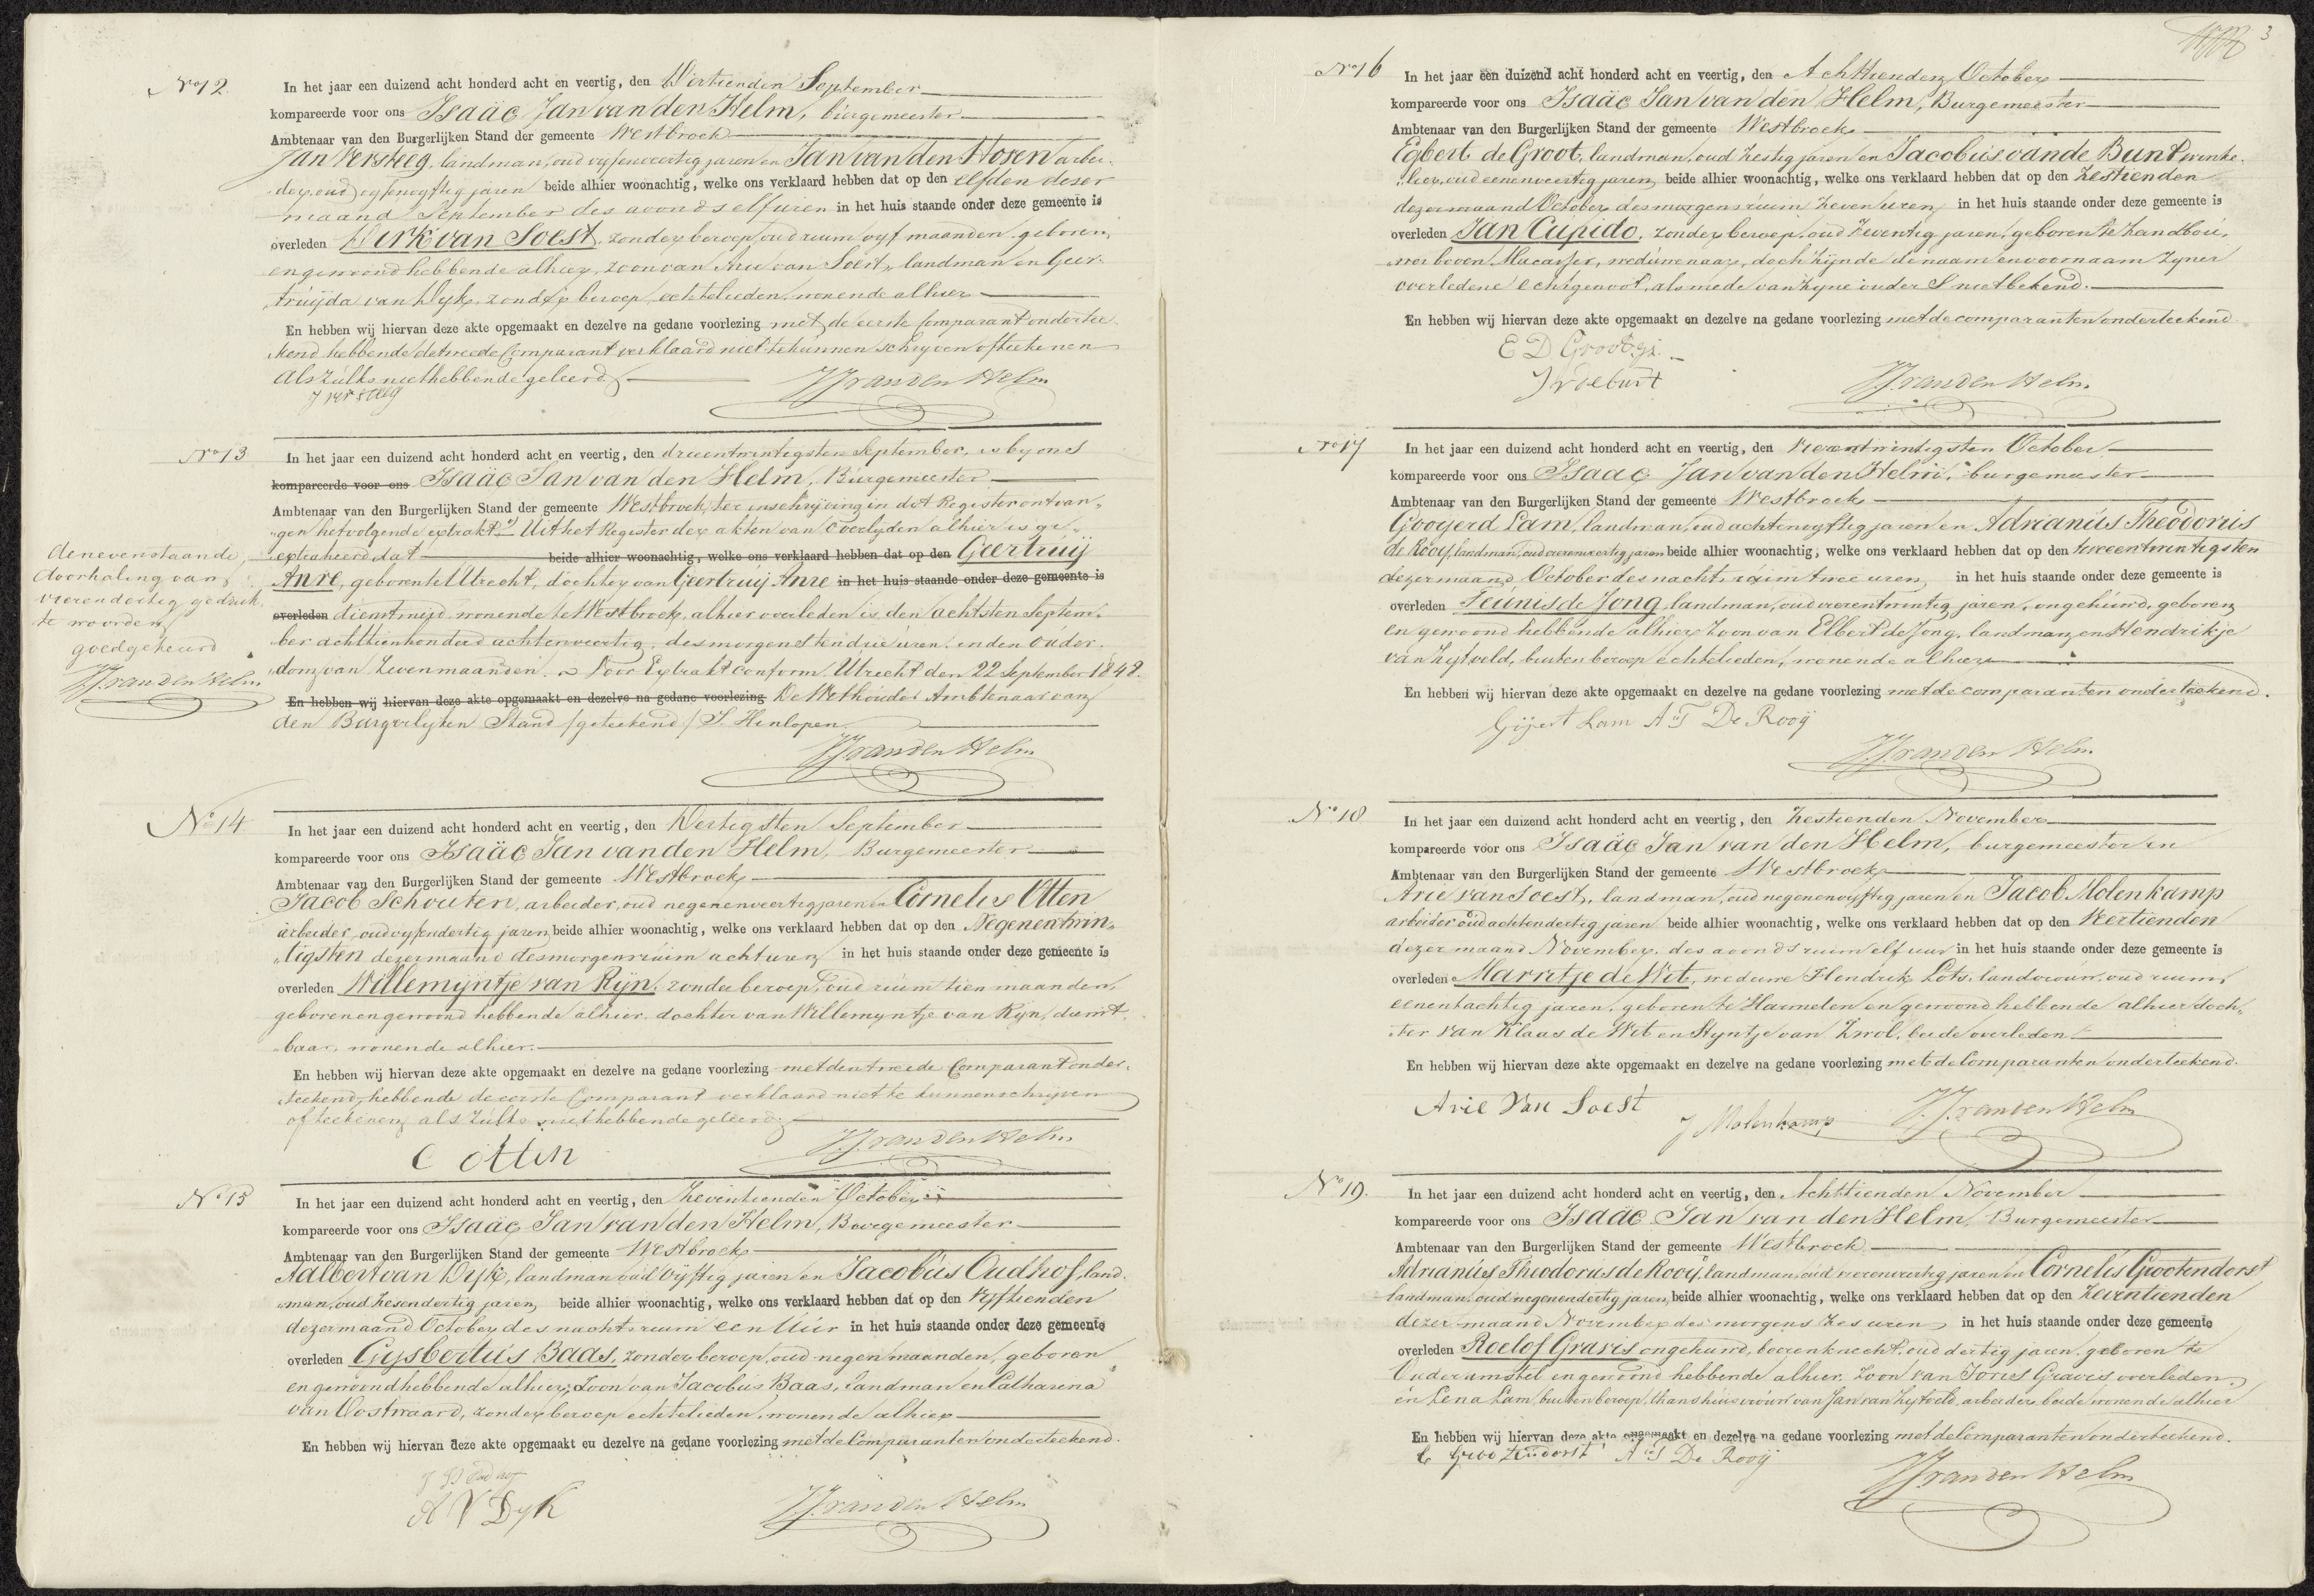 No 12. In het jaar een duizend acht honderd acht en veertig, den Dertienden September
kompareerde voor ons Isaäc Jan van den Helm, burgemeester
Ambtenaar van den Burgerlijken Stand der gemeente Westbroek
Jan Versteeg, landman, oud vyfenveertig jaren en Jan van den Hoven arbei-
der, oud vyfenvyftig jaren beide alhier woonachtig, welke ons verklaard hebben dat op den elfden dezer
maand September des avonds elf uren in het huis staande onder deze gemeente is
overleden Dirk van Soest, zonder beroep, oud ruim vyf maanden, geboren
en gewoond hebbende alhier, zoon van Arie van Soest, landman en Geer-
truijda van Dijk, zonder beroep, echtelieden, wonende alhier
En hebben wij hiervan deze akte opgemaakt en dezelve na gedane voorlezing met de eerste Comparant ondertee-
kend hebbende de tweede Comparant verklaard niet te kunnen schryven of teekenen
als zulks niet hebbende geleerd
J versteeg
IJvandenHelm
No 13 In het jaar een duizend acht honderd acht en veertig, den drieentwintigsten September, is by ons
kompareerde voor ons Isaäc Jan van den Helm, Burgemeester
Ambtenaar van den Burgerlijken Stand der gemeente Westbroek, ter inschryving in dit Register ontvan-
gen het volgende extrakt: Uit het Register der akten van Overlyden alhier is ge-
extraheerd dat beide alhier woonachtig, welke ons verklaard hebben dat op den Geertruij
Anre, geboren te Utrecht, dochter van Geertruij Anre in het huis staande onder deze gemeente is
overleden dienstmeid, wonende te Westbroek, alhier overleden is den achtsten Septem-
ber achttienhonderd achtenveertig, des morgens ten drie uren, in den ouder-
dom van zeven maanden. Voor Extrakt conform Utrecht den 22 September 1848.
En hebben wij hiervan deze akte opgemaakt en dezelve na gedane voorlezing De Wethouder Ambtenaar van
den Burgerlyken Stand /geteekend/ J. Hinlopen
IJvandenHelm
de nevenstaande
doorhaling van
vierendertig gedruk-
te woorden
goedgekeurd
IJvandenHelm
No 14 In het jaar een duizend acht honderd acht en veertig, den Dertigsten September
kompareerde voor ons Isaäc Jan van den Helm, Burgemeester
Ambtenaar van den Burgerlijken Stand der gemeente Westbroek
Jacob Schouten, arbeider, oud negenenveertig jaren en Cornelis Otten
arbeider, oud vyfendertig jaren beide alhier woonachtig, welke ons verklaard hebben dat op den Negenentwin-
tigsten dezer maand des morgens ruim acht uren in het huis staande onder deze gemeente is
overleden Willemijntje van Rijn, zonder beroep, oud ruim tien maanden,
geboren en gewoond hebbende alhier, dochter van Willemyntje van Rijn, dienst-
baar, wonende alhier.
En hebben wij hiervan deze akte opgemaakt en dezelve na gedane voorlezing met den tweede Comparant onder-
teekend, hebbende de eerste Comparant verklaard niet te kunnen schrijven
of teekenen als zulks niet hebbende geleerd.
C Otten
IJvandenHelm
No 15 In het jaar een duizend acht honderd acht en veertig, den Zeventienden October
kompareerde voor ons Isaäc Jan van den Helm, Burgemeester
Ambtenaar van den Burgerlijken Stand der gemeente Westbroek
Aalbert van Dijk, landman oud vyftig jaren en Jacobus Oudhof, land-
man, oud zesendertig jaren beide alhier woonachtig, welke ons verklaard hebben dat op den Vyftienden
dezer maand October des nachts ruim een Uur in het huis staande onder deze gemeente
overleden Gysbertus Baas, zonder beroep, oud negen maanden, geboren
en gewoond hebbende alhier, zoon van Jacobus Baas, landman en Catharina
van Oostwaard, zonder beroep echtelieden, wonende alhier
En hebben wij hiervan deze akte opgemaakt en dezelve na gedane voorlezing met de Comparanten onderteekend.
Oudhof
A V Dyk
IJvandenHelm
3
No 16 In het jaar een duizend acht honderd acht en veertig, den Achttienden October
kompareerde voor ons Isaäc Jan van den Helm, Burgemeester
Ambtenaar van den Burgerlijken Stand der gemeente Westbroek
Egbert de Groot, landman, oud zestig jaren en Jacobus van de Bunt winke-
lier, oud eenenveertig jaren beide alhier woonachtig, welke ons verklaard hebben dat op den zestienden
dezer maand October des morgens ruim zeven uren in het huis staande onder deze gemeente is
overleden Jan Cupido, zonder beroep, oud zeventig jaren, geboren te Zandbou-
wer boven Macasser, weduwenaar, doch zijnde de naam en voornaam zyner
overledene echtgenoot, als mede van zyne ouders niet bekend.
En hebben wij hiervan deze akte opgemaakt en dezelve na gedane voorlezing met de comparanten onderteekend
E D Groot gz.
J vdebunt
IJvandenHelm
No 17 In het jaar een duizend acht honderd acht en veertig, den Vierentwintigsten October
kompareerde voor ons Isaac Jan van den Helm, burgemeester
Ambtenaar van den Burgerlijken Stand der gemeente Westbroek
Gooyerd Lam, landman, oud achtenvyftig jaren en Adrianus Theodorus
de Rooy, landman, oud vierenveertig jaren beide alhier woonachtig, welke ons verklaard hebben dat op den tweeentwintigsten
dezer maand October des nachts ruim twee uren in het huis staande onder deze gemeente is
overleden Teunis de Jong landman, oud vierentwintig jaren, ongehuwd, geboren
en gewoond hebbende alhier zoon van Elbert de Jong, landman en Hendrikje
van Zytveld, buiten beroep echtelieden, wonende alhier
En hebben wij hiervan deze akte opgemaakt en dezelve na gedane voorlezing met de comparanten onderteekend.
Gijert Lam A T De Rooij
IJvandenHelm
No 18 In het jaar een duizend acht honderd acht en veertig, den Zestienden November
kompareerde voor ons Isaäc Jan van den Helm, burgemeester en
Ambtenaar van den Burgerlijken Stand der gemeente Westbroek
Arie van Soest, landman, oud negenenvyftig jaren en Jacob Molenkamp
arbeider oud achtendertig jaren beide alhier woonachtig, welke ons verklaard hebben dat op den Veertienden
dezer maand November, des avonds ruim elf uur in het huis staande onder deze gemeente is
overleden Marretje de Wit, weduwe Hendrik Lots, landvrouw, oud ruim
eenentachtig jaren, geboren te Harmelen en gewoond hebbende alhier doch-
ter van Klaas de Wit en Styntje van Zwol, beide overleden
En hebben wij hiervan deze akte opgemaakt en dezelve na gedane voorlezing met de Comparanten onderteekend.
Arie Van Soest
J Molenkamp
IJvandenHelm
No 19. In het jaar een duizend acht honderd acht en veertig, den Achttienden November
kompareerde voor ons Isaäc Jan van den Helm, Burgemeester
Ambtenaar van den Burgerlijken Stand der gemeente Westbroek
Adrianus Theodorus de Rooij, landman, oud vierenveertig jaren en Cornelis Grootendorst
landman, oud negenendertig jaren beide alhier woonachtig, welke ons verklaard hebben dat op den Zeventienden
dezer maand November des morgens zes uren in het huis staande onder deze gemeente
overleden Roelof Gravis ongehuwd, boerenknecht, oud dertig jaren, geboren te
Ouderamstel en gewoond hebbende alhier, zoon van Joris Gravis overleden
en Lena Lam, buiten beroep, thans huisvrouw van Jan van Zytveld, arbeider, beide wonende alhier
En hebben wij hiervan deze akte opgemaakt en dezelve na gedane voorlezing met de Comparanten onderteekend.
C Grootendorst A T De Rooij
IJvandenHelm